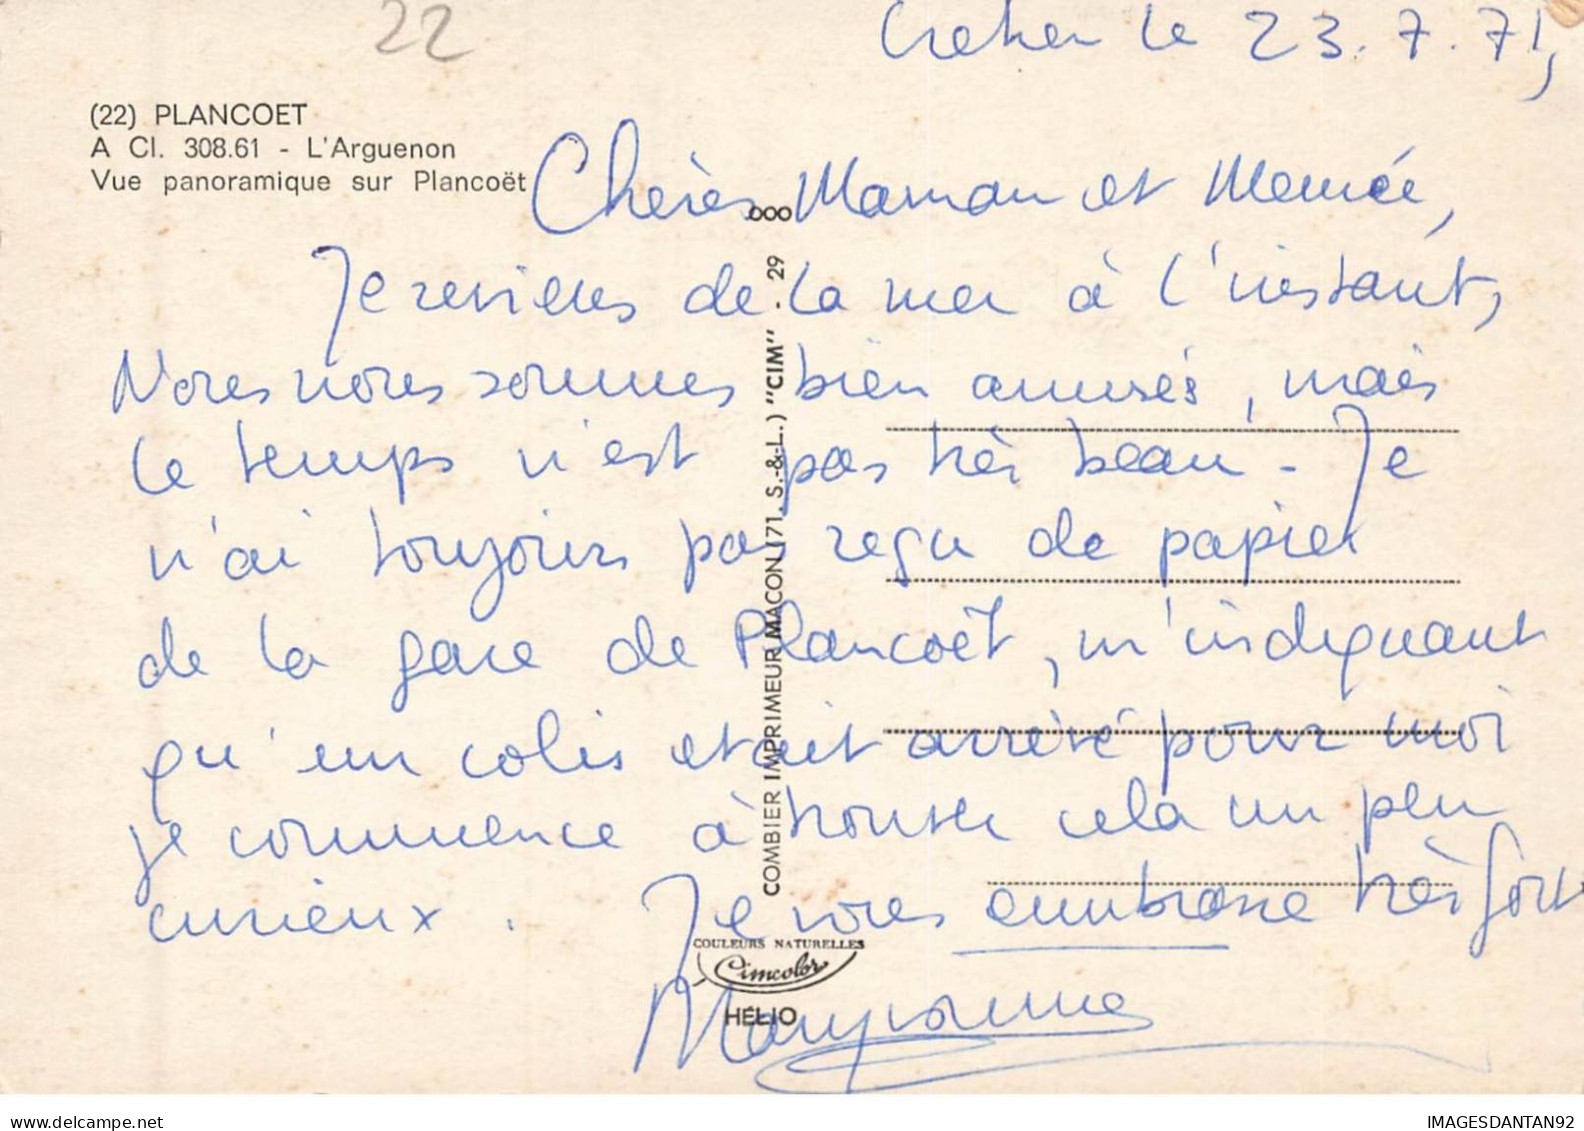 22
Crehen le 23.7.71,
(22) PLANCOET
A Cl. 308.61 - L'Arguenon
Vue panoramique sur Plancoët
Chères Maman et Memée,
Je reviens de la mer à l'instant,
Nous nous sommes bien amusés, mais
le temps n'est pas très beau - Je
n'ai toujours pas reçu de papier
de la gare de Plancoët, m'indiquant
qu'un colis etait arrivé pour moi
je commence à trouver cela un peu
curieux. Je vous embrasse très fort
Maryvonne
COMBIER IMPRIMEUR MACON (71. S.-&-L.) "CIM" - 29 000
COULEURS NATURELLES
Cimcolor
HÉLIO
www.delcampe.net
IMAGESDANTAN92